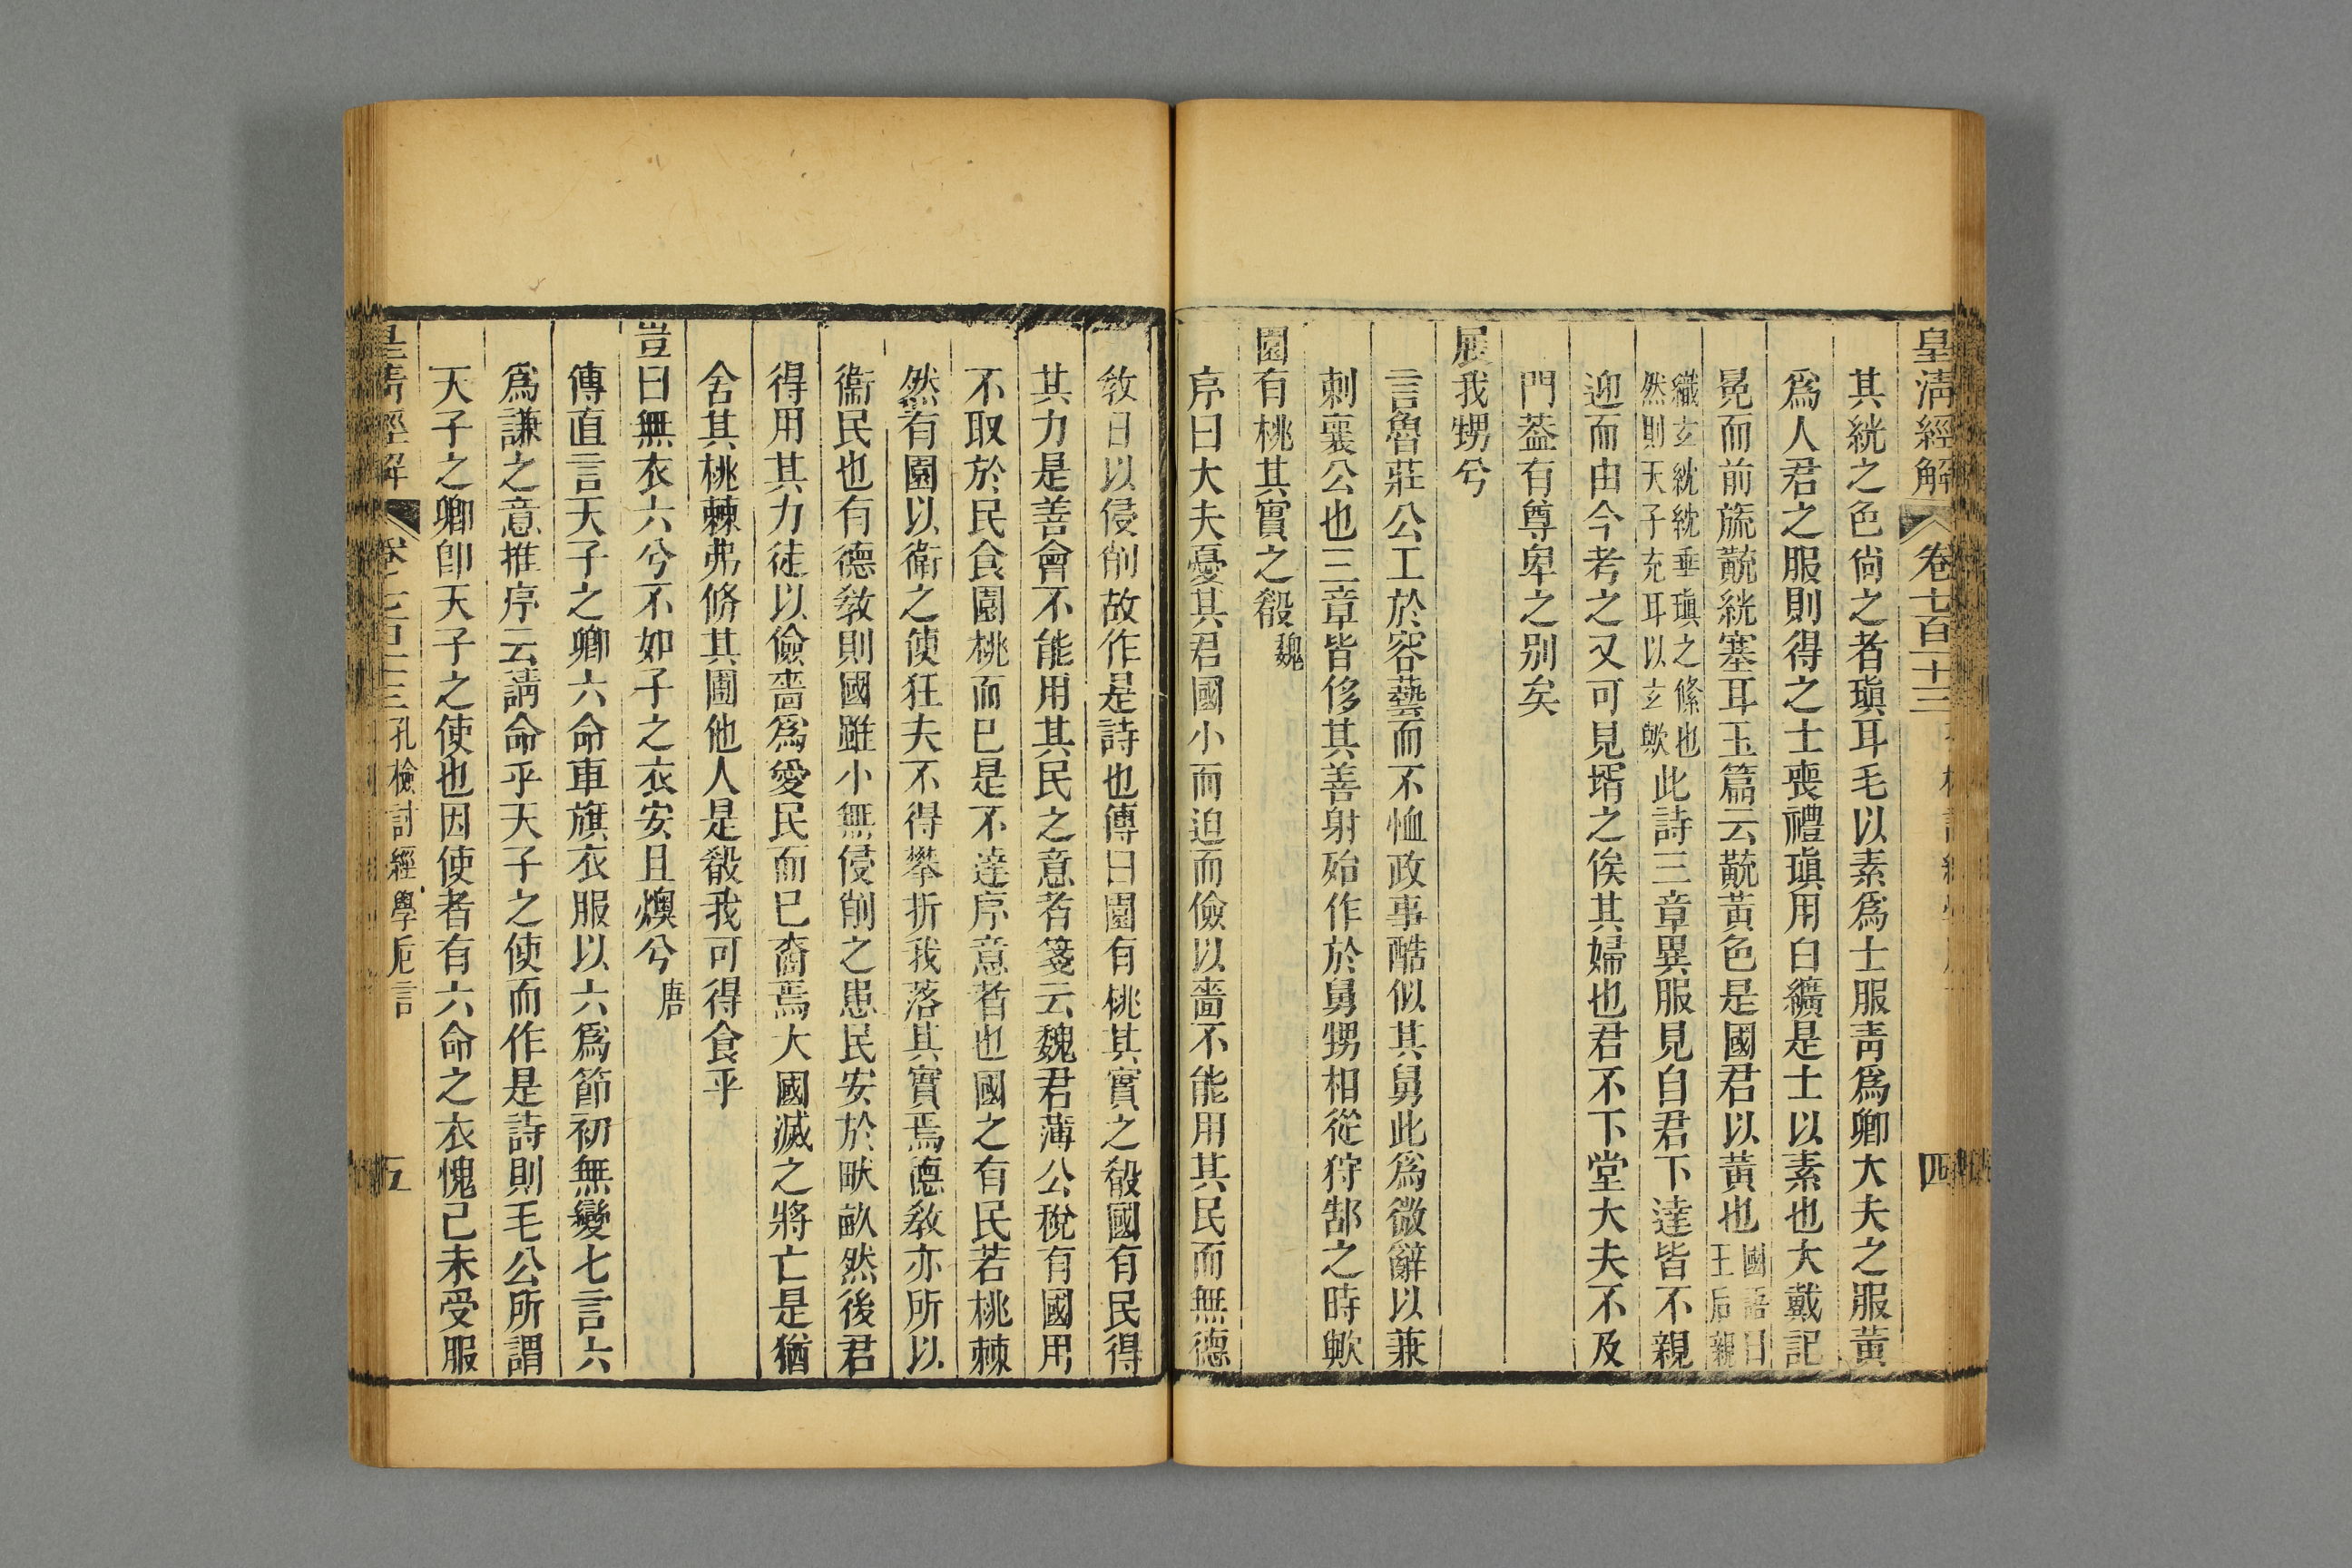 皇淸經解 卷七百十三 四
其絖之色尙之者瑱耳毛以素爲士服靑爲卿大夫之服黃
爲人君之服則得之士喪禮瑱用白纊是士以素也大戴記
冕而前旒黈絖塞耳玉篇云黈黃色是國君以黃也國語曰王后親
織玄紞紞垂瑱之絛也然則天子充耳以玄歟此詩三章異服見自君下達皆不親
迎而由今考之又可見壻之俟其婦也君不下堂大夫不及
門葢有尊卑之別矣
展我甥兮
言魯莊公工於容藝而不恤政事酷似其舅此爲微辭以兼
刺襄公也三章皆侈其善射殆作於舅甥相從狩郜之時歟
園有桃其實之殽魏
序曰大夫憂其君國小而迫而儉以嗇不能用其民而無德
敎日以侵削故作是詩也傳曰園有桃其實之殽國有民得
其力是善會不能用其民之意者箋云魏君薄公稅有國用
不取於民食園桃而已是不達序意者也國之有民若桃棘
然有園以衛之使狂夫不得攀折我落其實焉德敎亦所以
衞民也有德敎則國雖小無侵削之患民安於畎畝然後君
得用其力徒以儉嗇爲愛民而已裔焉大國滅之將亡是猶
舍其桃棘弗脩其圃他人是殽我可得食乎
豈曰無衣六兮不如子之衣安且燠兮唐
傳直言天子之卿六命車旗衣服以六爲節初無變七言六
爲謙之意推序云請命乎天子之使而作是詩則毛公所謂
天子之卿卽天子之使也因使者有六命之衣愧己未受服
皇淸經解 卷七百十三 孔檢討經學卮言 五